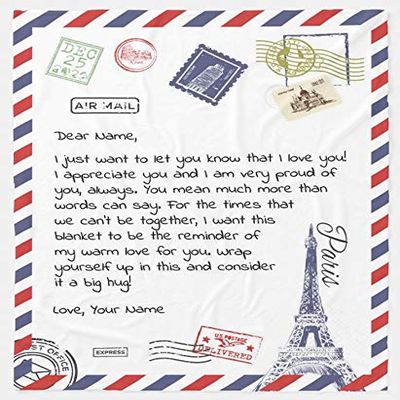 DEC
25
AIR MAIL
Dear Name,
I just want to let you know that I love you!
I appreciate you and I am very proud of
you, always. You mean much more than
words can say. For the times that
we can't be together, I want this
blanket to be the reminder of
my warm love for you. Wrap
yourself up in this and consider
it a big hug!
Love, Your Name
Paris
U.S. POSTAGE
DELIVERED
EXPRESS
POST OFFICE